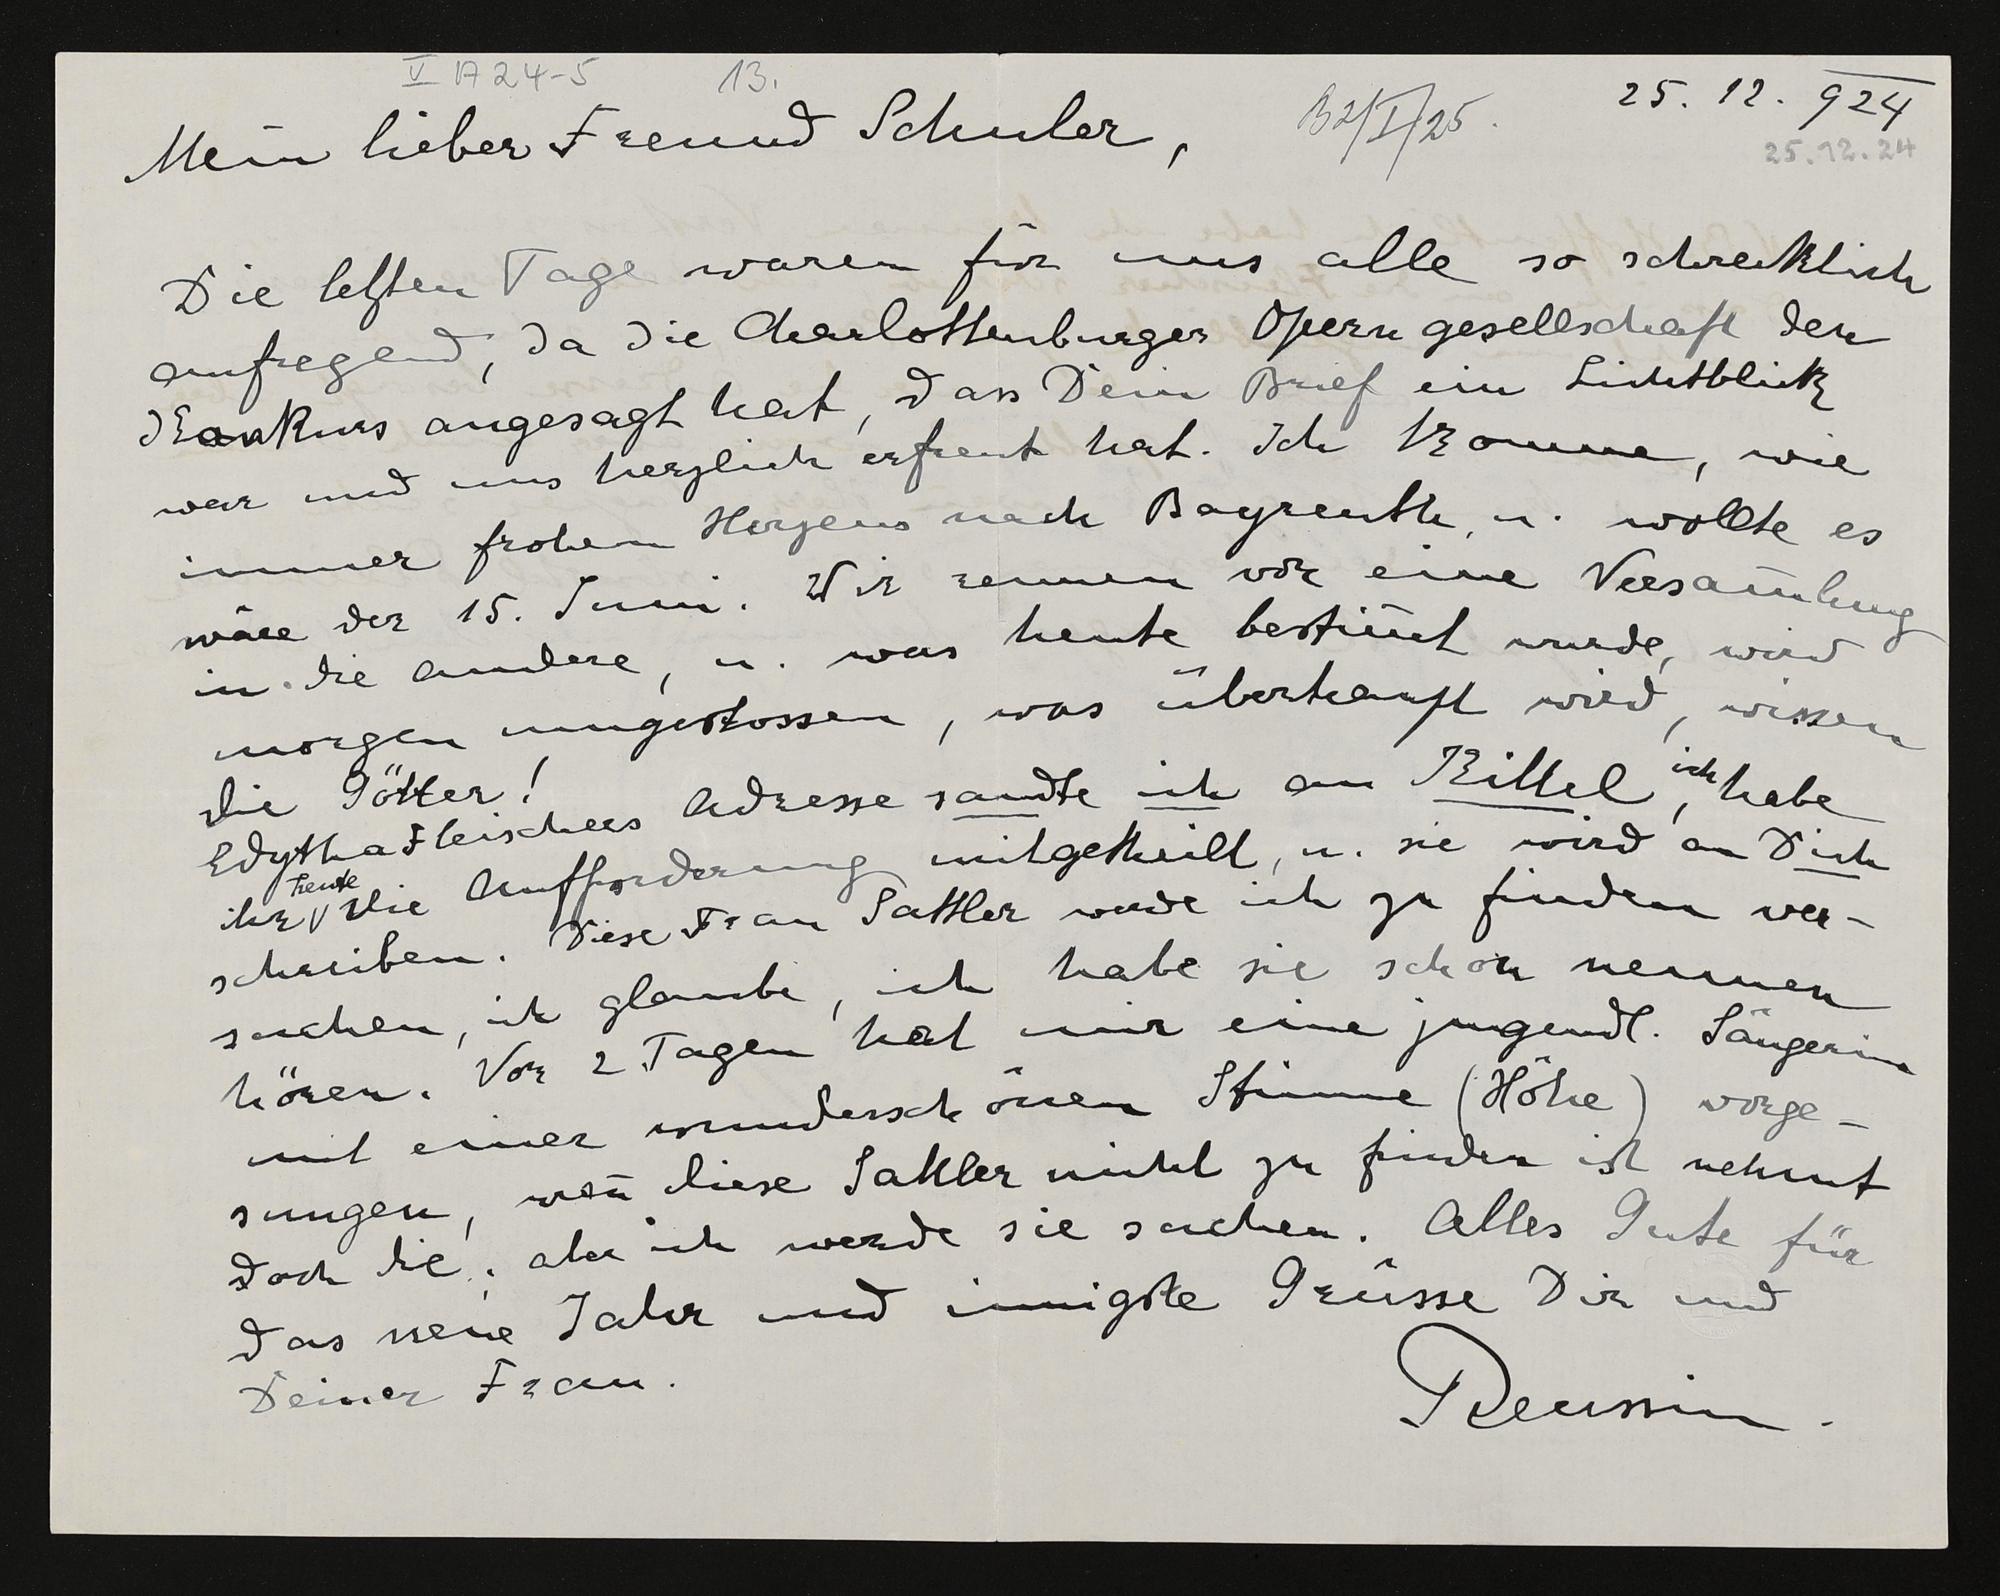 V A 24-5 13.
25. 12. 924
B 2/I/25.
25.12.24
Mein lieber Freund Schuler,
Die letzten Tage waren für uns alle so schrecklich
aufregend, da die Charlottenburger Operngesellschaft den
Konkurs angesagt hat, dass Dein Brief ein Lichtblick
war und uns herzlich erfreut hat. Ich komme, wie
immer frohen Herzens nach Bayreuth, u. wollte es
wäre der 15. Juni. Wir rennen von eine Versam̄lung
in die andere, u. was heute bestim̄t wurde, wird
morgen umgestossen, was überhaupt wird, wissen
die Götter!
Edytha Fleischers Adresse sandte ich an Kittel, ich habe
ihr heute die Aufforderung mitgetheilt, u. sie wird an Dich
schreiben. Diese Frau Sattler werde ich zu finden ver-
suchen, ich glaube, ich habe sie schon nennen
hören. Vor 2 Tagen hat mir eine jugendl. Sängerin
mit einer wunderschönen Stimme (Höhe) vorge-
sungen, wen̄ diese Sattler nicht zu finden ist nehmt
doch die, aber ich werde sie suchen. Alles Gute für
das neue Jahr und innigste Grüsse Dir und
Deiner Frau.